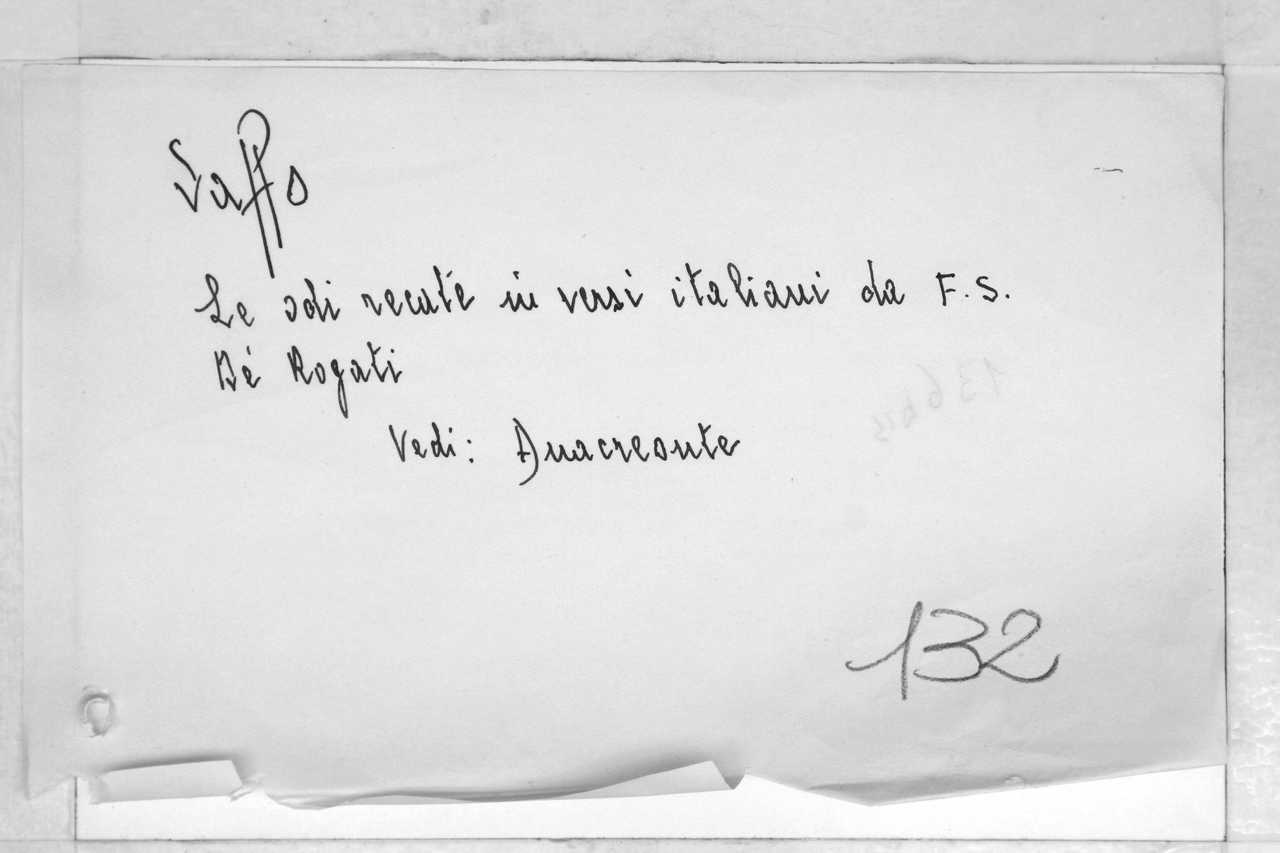 Saffo
Le odi recate in versi italiani da F.S.
De' Rogati
Vedi: Anacreonte
132